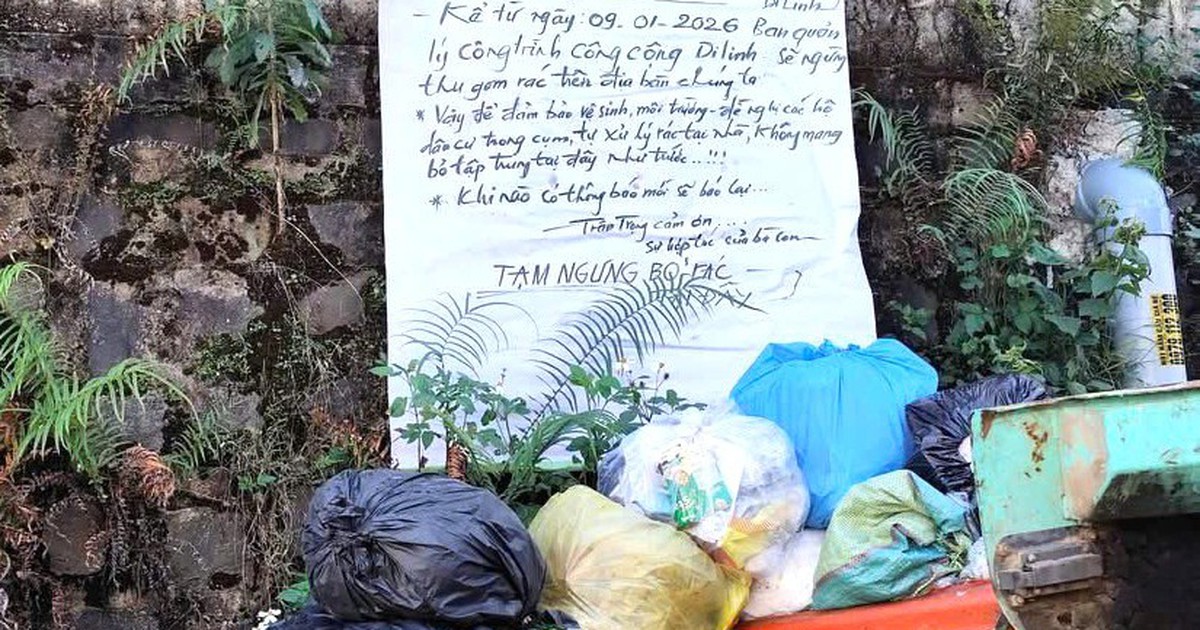 Di Linh
- Kể từ ngày: 09-01-2026 Ban quản
lý công trình công cộng Di Linh sẽ ngừng
thu gom rác trên địa bàn chúng ta
* Vậy để đảm bảo vệ sinh, môi trường - đề nghị các hộ
dân cư trong cụm, tự xử lý rác tại nhà, không mang
bỏ tập trung tại đây như trước..!!!
* Khi nào có thông báo mới sẽ báo lại...
Trân Trọng cảm ơn,....
sự hợp tác của bà con
TẠM NGƯNG BỎ RÁC
TẠI ĐÂY